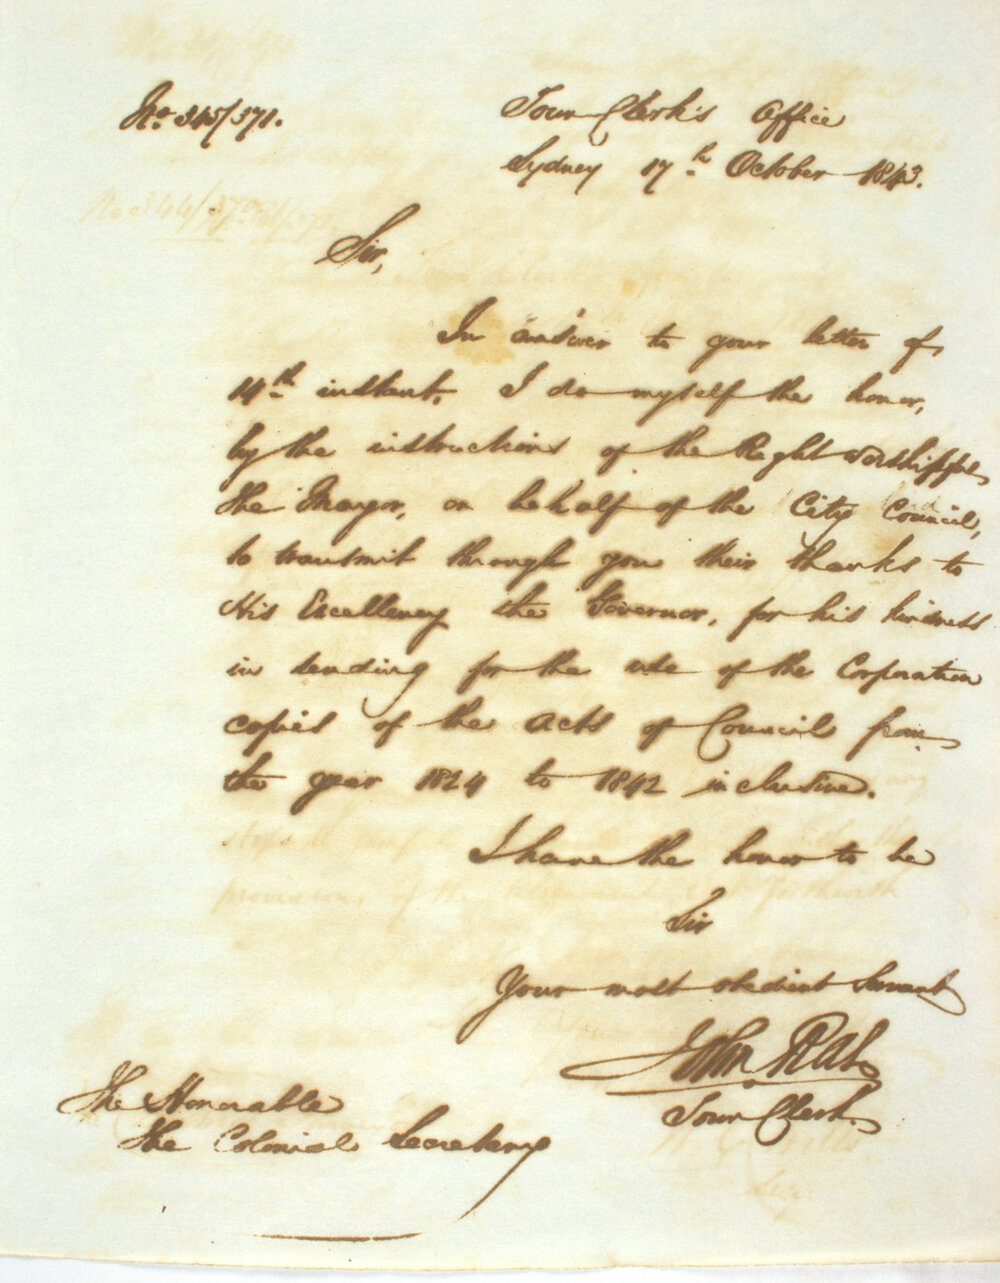 No. 345/371.
Town Clerk's Office
Sydney 17th October 1843.
Sir,
In answer to your letter of
14th instant, I do myself the honor,
by the instructions of the Right Worshipful
the Mayor, on behalf of the City Council,
to transmit through you their thanks to
His Excellency the Governor, for his kindness
in sending for the use of the Corporation
copies of the Acts of Council from
the year 1824 to 1842 inclusive.
I have the honor to be
Sir
Your most obedient Servant
John Rae
Town Clerk.
The Honorable
The Colonial Secretary